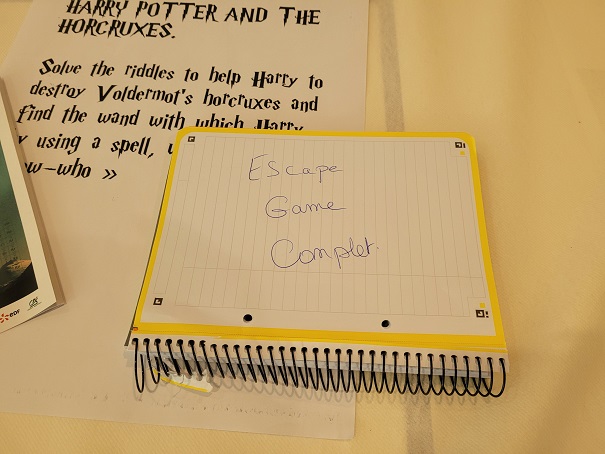 HARRY POTTER AND THE
HORCRUXES.
Solve the riddles to help Harry to
destroy Voldermot's horcruxes and
find the wand with which Harry
y using a spell,
ow-who »
Escape
Game
Complet.
EDF